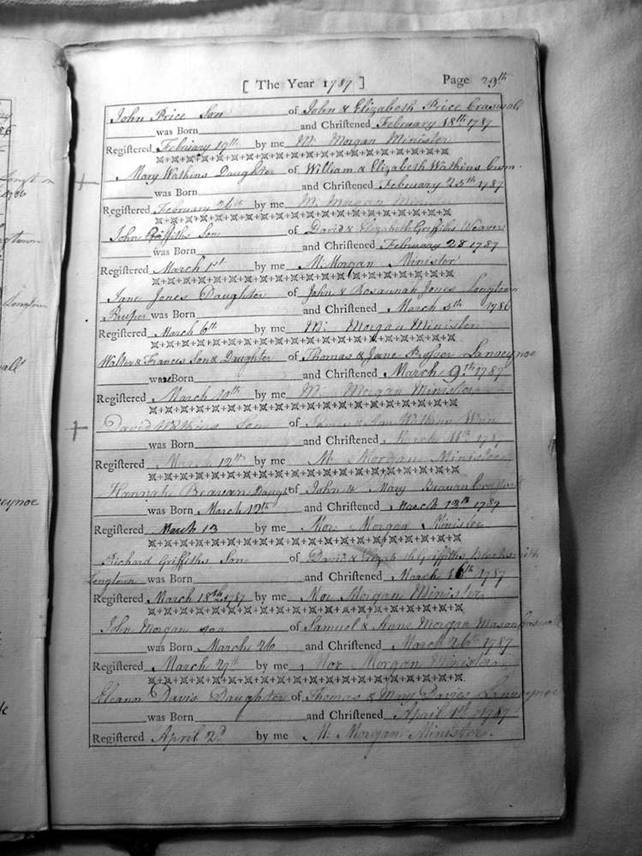 [ The Year 1787 ] Page 29th
John Price Son of John & Elizabeth Price Craswall
was Born and Christened February 18th 1787
Registered February 19th by me M. Morgan Minister
Mary Watkins Daughter of William & Elizabeth Watkins
was Born and Christened February 25th 1787
Registered February 26th by me M. Morgan
John Griffiths Son of David & Elizabeth Griffiths Weaver
was Born and Christened February 28 1787
Registered March 1st by me M. Morgan Minister
Jane Jones Daughter of John & Rosannah Jones Longtown
was Born and Christened March 5th 1786
Registered March 6th by me M. Morgan Minister
Walter & Francis Son & Daughter of Thomas & Jane Prosser Lanveynoe
was Born and Christened March 9th 1787
Registered March 10th by me M. Morgan Minister
David Watkins Son of Watkins
was Born and Christened March 11th
Registered March 12th by me M. Morgan Minister
Hannah Beavan Daught of John & Mary Beavan
was Born March 12th and Christened March 13th 1787
Registered March 13 by me Mor Morgan Minister
Richard Griffiths Son of David & Elizabeth Griffiths
Longtown was Born and Christened March 16th 1787
Registered March 18th 1787 by me Mor Morgan Minister
John Morgan son of Samuel & Anne Morgan Mason
was Born March 26 and Christened March 26th 1787
Registered March 27th by me Mor Morgan Minister
Eleanor Davis Daughter of Thomas & Mary Davies Lanveynoe
was Born and Christened April 1st 1787
Registered April 2d by me M. Morgan Minister